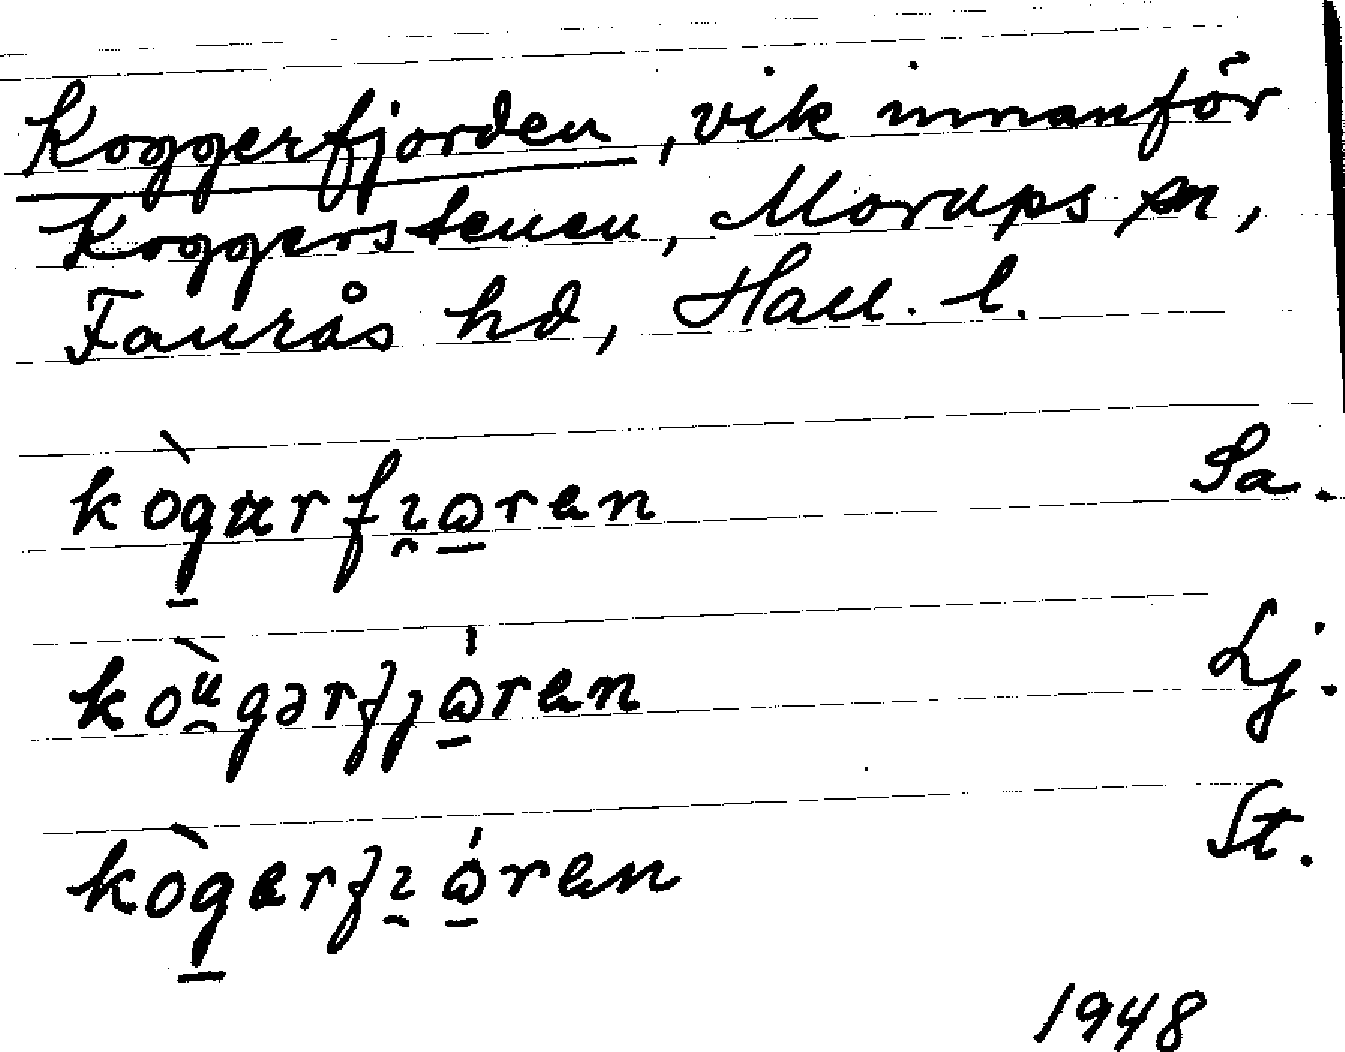 Koggerfjorden, vik innanför
Koggerstenen, Morups sn,
Faurås hd, Hall. l.
kògarfi̯ɷren Sa.
kòu̯gərfjɷ́ren Lj.
kògerfi̯ɷ́ren St.
1948